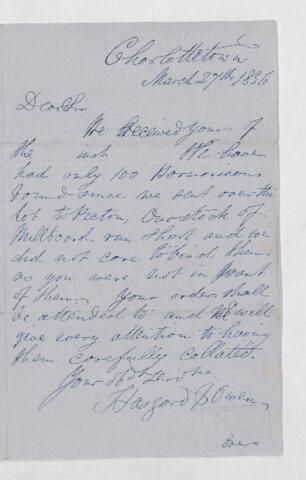 Charlottetown
March 27th, 1836
Dear Sir
We received yours of
the inst We have
had only 100
bound since we sent over the
lot to Pictou, Our stock of
Millboard run short and we
did not care to bind them
as you were not in want
of them. Your orders shall
be attended to and We will
give every attention to having
them carefully collated.
Your Obdt Servts
Haszard & Owen
over